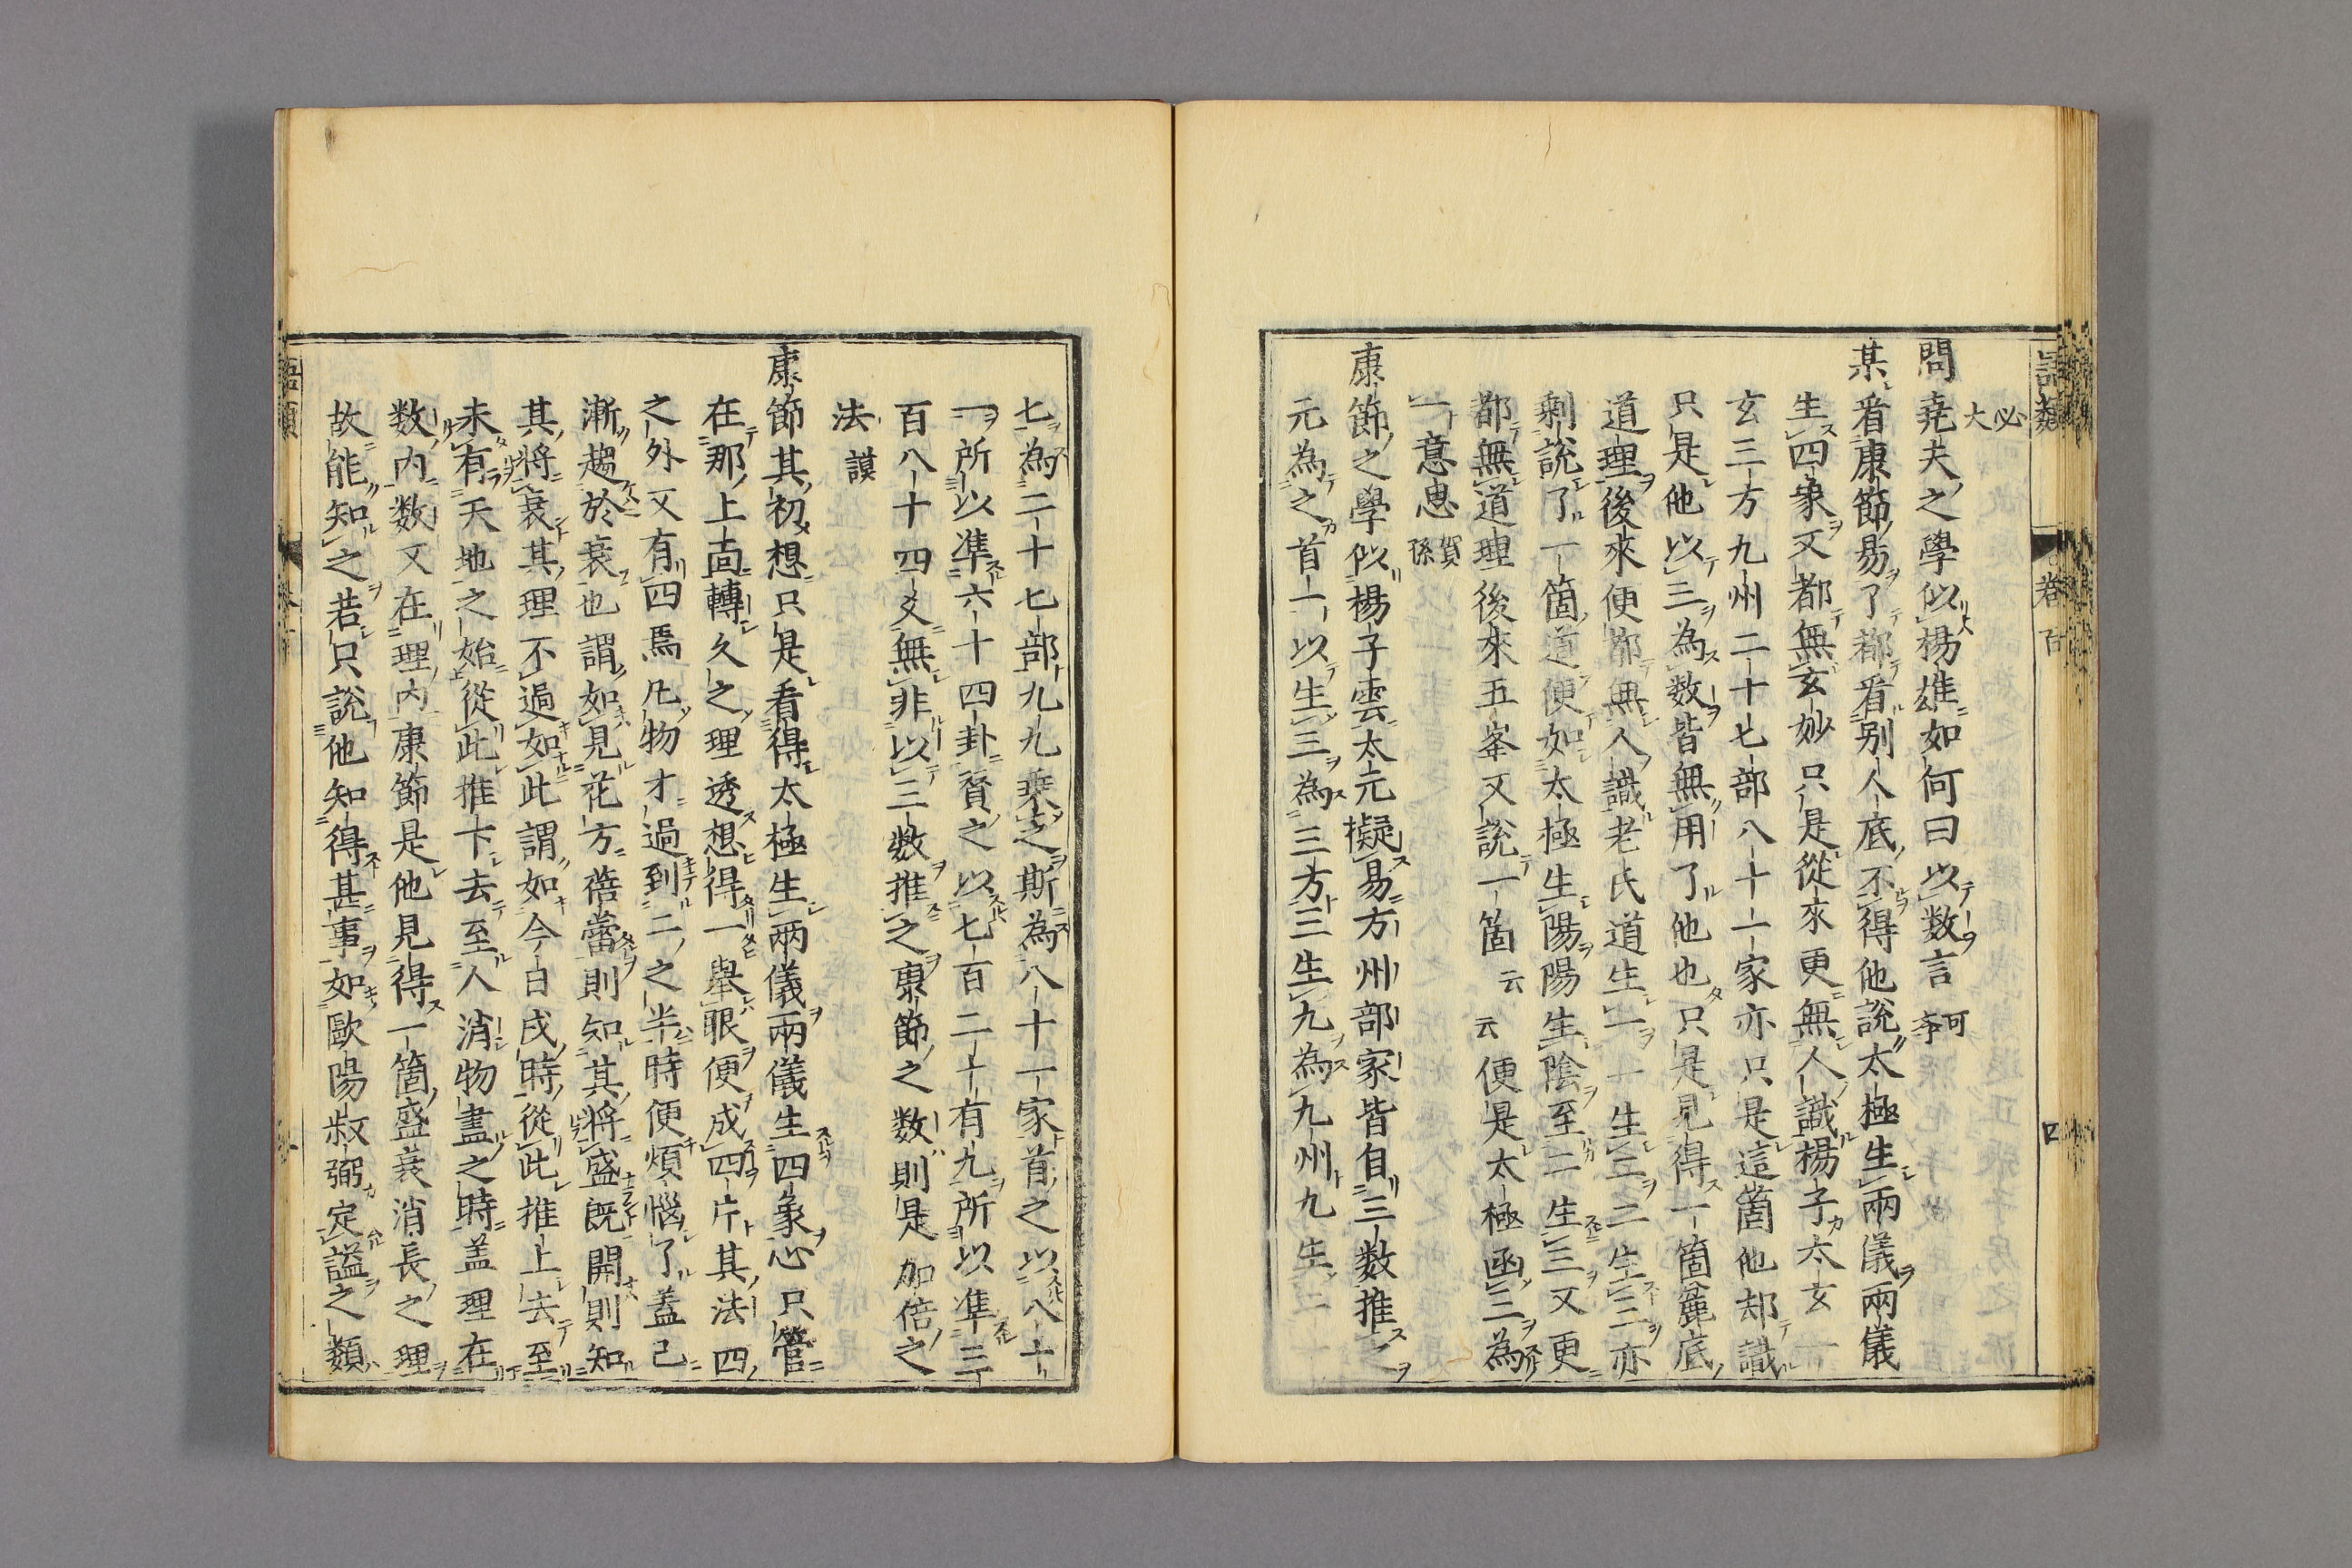 語類
卷百
四
必大
問堯夫之學似楊雄如何曰以数言 可孝
某看康節易了都看別人底不得他說太極生兩儀兩儀
生四象又都無玄妙只是從來更無人識楊子太玄一
玄三方九州二十七部八十一家亦只是這箇他却識
只是他以三為数皆無用了他也只是見得一箇麄底
道理後來便都無人識老氏道生一一生二二生三亦
剩說了一箇道便如太極生陽陽生陰至二生三又更
都無道理後來五峯又說一箇云云便是太極函三為
一意思 賀孫
康節之學似楊子雲太元擬易方州部家皆自三数推之
元為之首一以生三為三方三生九為九州九生二十
七為二十七部九九乘之斯為八十一家首之以八十
一所以準六十四卦賛之以七百二十有九所以準三
百八十四爻無非以三数推之康節之数則是加倍之
法 謨
康節其初想只是看得太極生兩儀兩儀生四象心只管
在那上面轉久之理透想得一舉眼便成四片其法四
之外又有四焉凡物才過到二之半時便煩惱了蓋已
漸趨於衰也謂如見花方蓓蕾則知其將盛既開則知
其將衰其理不過如此謂如今日戌時從此推上去至
未有天地之始從此推下去至人消物盡之時盖理在
数內数又在理內康節是他見得一箇盛衰消長之理
故能知之若只說他知得甚事如歐陽叔弼定謚之類
語類